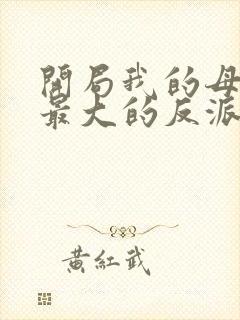 開局我的母
最大的反派
黃紅武